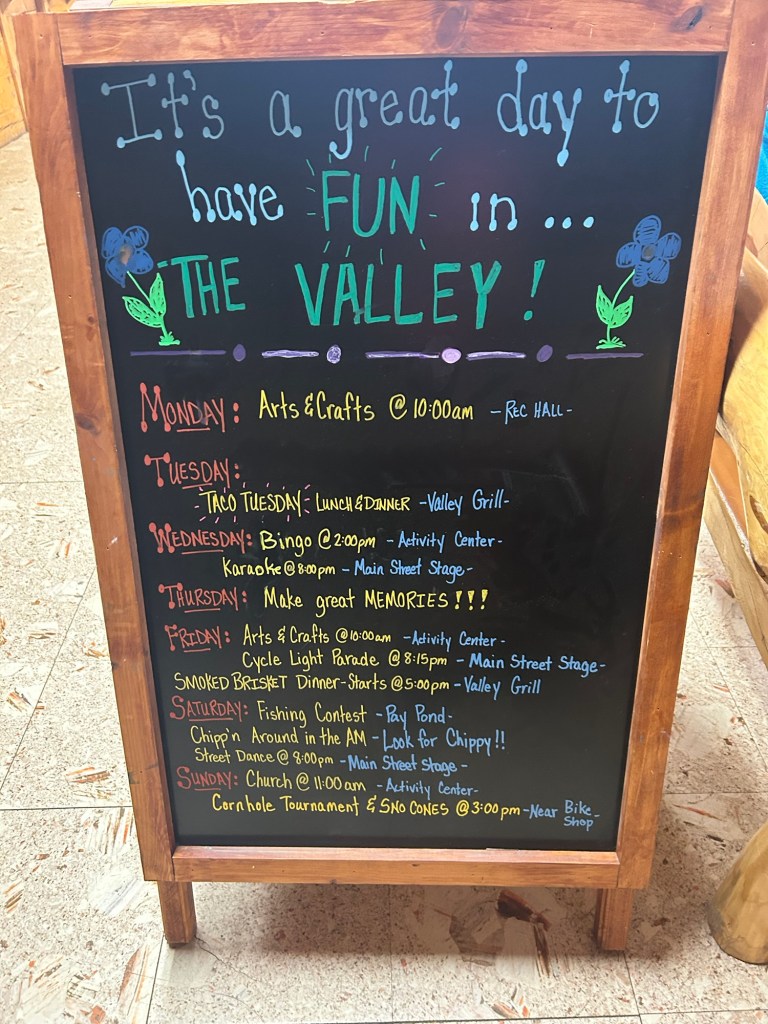 It's a great day to
have FUN in ...
THE VALLEY!
MONDAY: Arts & Crafts @ 10:00am - REC HALL -
TUESDAY:
TACO TUESDAY - LUNCH & DINNER - Valley Grill -
WEDNESDAY: Bingo @ 2:00pm - Activity Center -
Karaoke @ 8:00pm - Main Street Stage -
THURSDAY: Make great MEMORIES!!!
FRIDAY: Arts & Crafts @ 10:00am - Activity Center -
Cycle Light Parade @ 8:15pm - Main Street Stage -
SMOKED BRISKET Dinner - Starts @ 5:00pm - Valley Grill
SATURDAY: Fishing Contest - Pay Pond -
Chipp'n Around in the AM - Look for Chippy!!
Street Dance @ 8:00pm - Main Street Stage -
SUNDAY: Church @ 11:00am - Activity Center -
Cornhole Tournament & SNO CONES @ 3:00pm - Near Bike Shop -